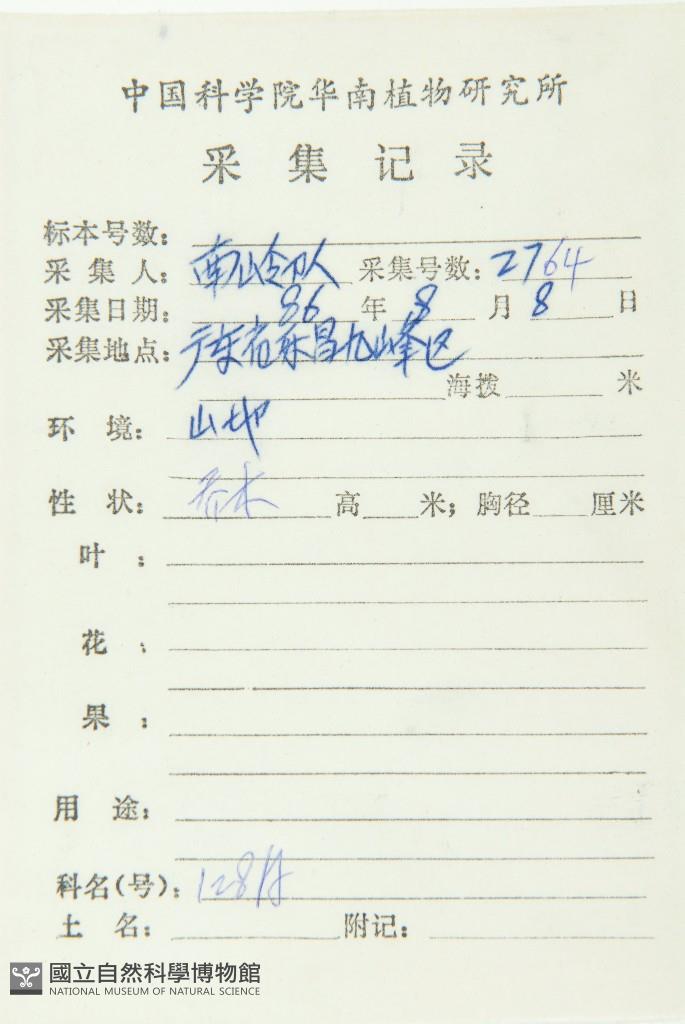 中国科学院华南植物研究所
采集记录
标本号数:
采集人: 南岭队 采集号数: 2764
采集日期: 86 年 8 月 8 日
采集地点: 广东省乐昌九峰区
海拨 米
环境: 山地
性状: 乔木 高 米; 胸径 厘米
叶:
花:
果:
用途:
科名(号): 128A
土名: 附记:
國立自然科學博物館
NATIONAL MUSEUM OF NATURAL SCIENCE